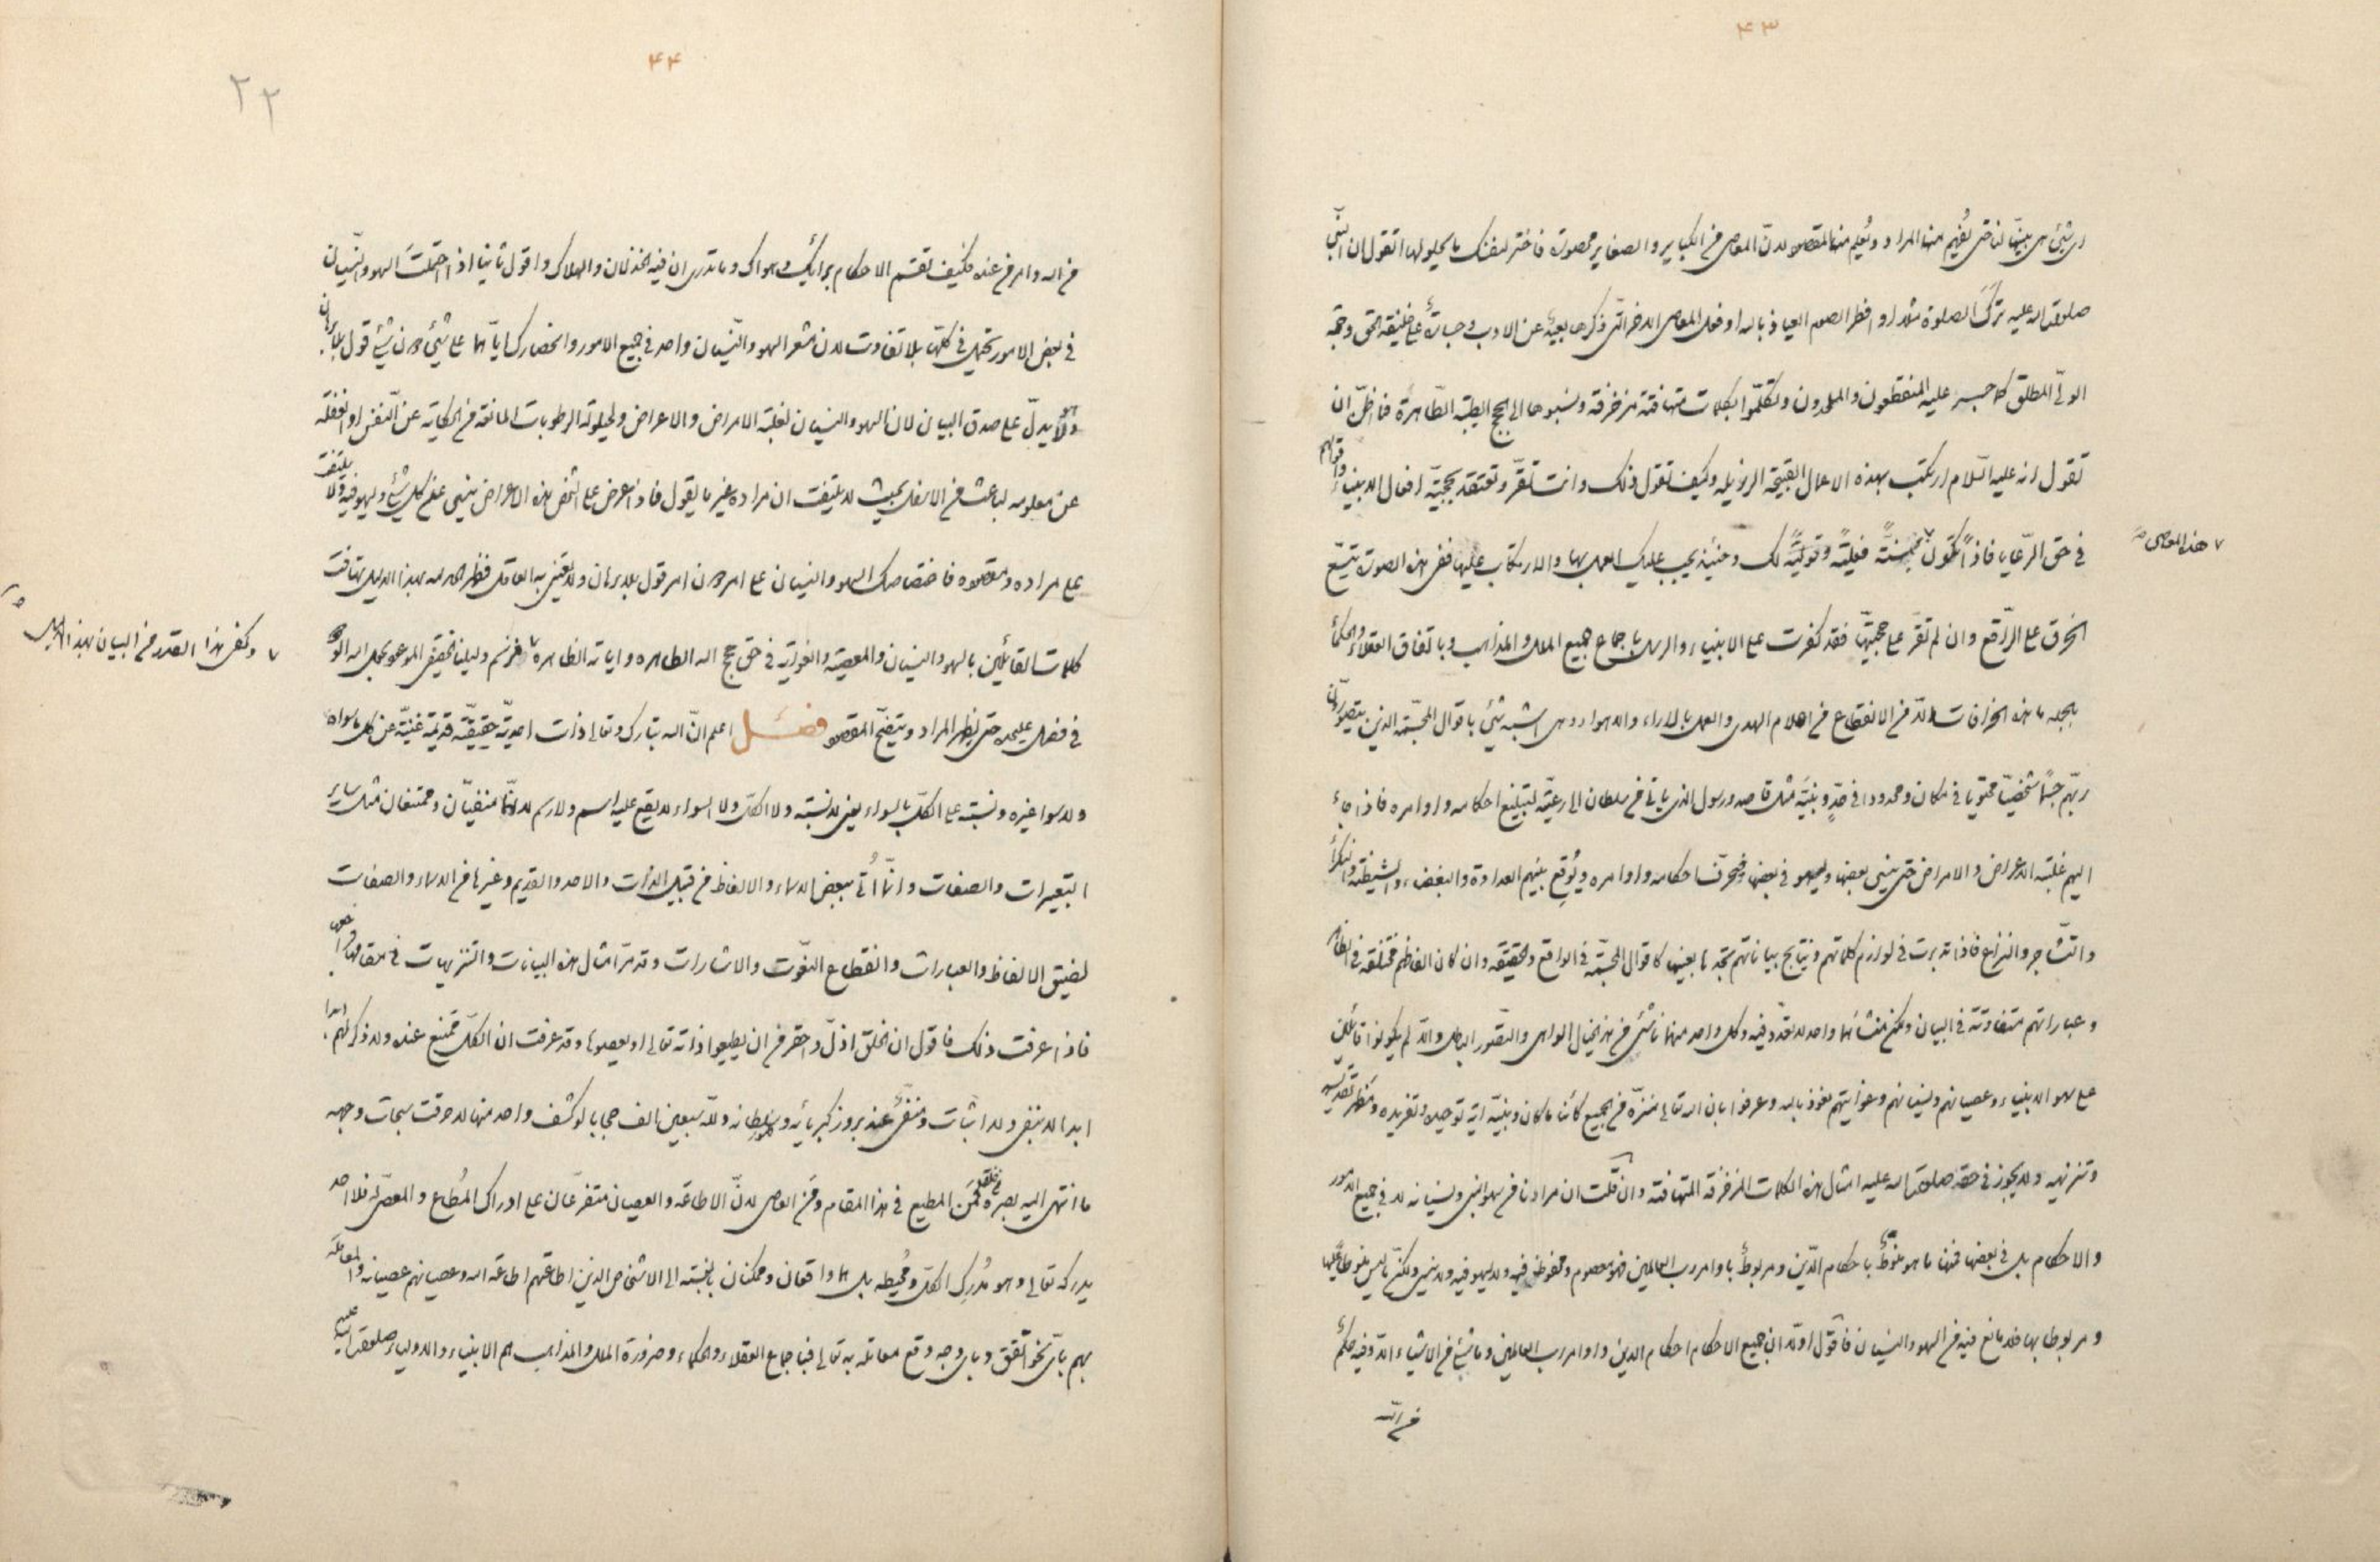 ۴۳
ای شیء هی بینها لنا حتی نفهم منها المراد و نعلم منها المقصود لان المعاصی من الکبایر و الصغایر محصورة فاختر لنفسک ما یحلو لها اتقول ان النبی
صلوات الله علیه ترک الصلوة مثلا او افطر الصوم العیاذ بالله او فعل المعاصی الاخر التی ذکرها بعید عن الادب و جسارة علی خلیفة الحق و حجة
الولی المطلق کما جسر علیه المنقطعون و الملحدون و تکلموا بکلمات متهافتة مزخرفة و نسبوها الی الحجج الطیبة الطاهرة فاظن ان
تقول انه علیه السلام ارتکب بهذه الاعمال القبیحة الرذیلة و کیف تقول ذلک و انت تقر و تعتقد بحجیة افعال الانبیاء و اقوالهم
هذه المعاصی
فی حق الرعایا فاذا تکون سنة فعلیة و قولیة لک و حینئذ یجب علیک العمل بها و الارتکاب علیها ففی هذه الصورة یتسع
الخرق علی الراقع و ان لم تقر علی حجیتها فقد کفرت علی الانبیاء و الرسل باجماع جمیع الملل و المذاهب و باتفاق العقلاء و الحکماء
بالجملة ما هذه الخرافات الا من الانقطاع من اعلام الهدی و العمل بالاراء و الاهواء و هی اشبه شیء باقوال المجسمة الذین یتصورون
ربهم جسما شخصیا محتویا فی مکان و محدودا فی حد و نبیه مثل قاصد و رسول الذی یاتی من سلطان الی رعیته لتبلیغ احکامه و اوامره فاذا جاء
الیهم غلبته الاعراض و الامراض حتی ینسی بعضها و یسهو فی بعضها و یحرف احکامه و اوامره و یوقع بینهم العداوة و البغضاء و الشیطنة و النکراء
و التشاجر و النزاع فاذا تدبرت فی لوازم کلماتهم و نتایج بیاناتهم تجدها بعینها کاقوال المجسمة فی الواقع و الحقیقة و ان کان الفاظهم مختلفة فی الظاهر
و عباراتهم متفاوتة فی البیان و لکن منشأها واحد لا تعدد فیه و کل واحد منهما ناشئ من هذا الخیال الواهی و التصور الباطل و الا لم یکونوا قائلین
علی سهو الانبیاء و عصیانهم و نسیانهم و غوایتهم نعوذ بالله و عرفوا بان الله تعالی منزه من الجمیع کائنا ما کان و نبیه آیة توحیده و تفریده و مظهر تقدیسه
و تنزیهه و لا یجوز فی حقه صلوات الله علیه امثال هذه الکلمات المزخرفة المتهافتة و ان قلت ان مرادنا من سهو النبی و نسیانه لا فی جمیع الامور
و الاحکام بل فی بعضها فمنها ما هو منوط باحکام الدین و مربوط باوامر رب العالمین فهو معصوم و محفوظ فیه و لا یسهو فیه و لا ینسی و لکن ما لیس منوطا علیها
و مربوطا بها فلا مانع فیه من السهو و النسیان فاقول اولا ان جمیع الاحکام احکام الدین و اوامر رب العالمین و ما شیء من الاشیاء الا و فیه حکم
من الله
۴۴
۲۲
من الله و امر من عنده فکیف تقسم الاحکام برایک و هواک و ما تدری ان فیه الخذلان و الهلاک و اقول ثانیا اذا احتملت السهو و النسیان
فی بعض الامور تحتمل فی کلها بلا تفاوت لان مشعر السهو و النسیان واحد فی جمیع الامور و انحصارک ایاهما علی شیء دون شیء قول بلا برهان
و لا یدل علی صدق البیان لان السهو و النسیان لغلبة الامراض و الاعراض و لحیلولة الرطوبات المانعة من الحکایة عن النفس او لغفلة
عن معلومه لباعث من الاسفل بحیث لا یلتفت ان مراده غیر ما یقول فاذا عرض علی الشخص هذه الاعراض ینسی عن کل شیء و یسهو فیه و لا یلتفت
علی مراده و مقصوده فاختصاصک السهو و النسیان علی امر دون امر قول بلا برهان و لا یعتنی به العاقل فظهر الحمد لله بهذا الدلیل تهافت
کلمات القائلین بالسهو و النسیان و المعصیة و الغوایة فی حق حجج الله الطاهرة و آیاته الظاهرة
و کفی هذا القدر من البیان بهذا الدلیل
فی فصل علیحدة حتی یظهر المراد و یتضح المقصود فصل اعلم ان الله تبارک و تعالی ذات احدیة حقیقیة قدیمة غنیة عن کل ما سواه
و لا سوا غیره و نسبته علی الکل بالسواء یعنی لا نسبة و لا الکل و لا السواء لا یقع علیه اسم و لا رسم لانهما منفیان و ممتنعان مثل سایر
التعبیرات و الصفات و انما اتی ببعض الاسماء و الالفاظ من قبیل الذات و الاحد و القدیم و غیرها من الاسماء و الصفات
لضیق الالفاظ و العبارات و انقطاع النعوت و الاشارات و قد مر امثال هذه البیانات و التنزیهات فی مقامها
فاذا عرفت ذلک فاقول ان الخلق اذل و احقر من ان یطیعوا ذاته تعالی او یعصوها و قد عرفت ان الکل ممتنع عنده و لا ذکر لهم
ابدا لا بنفی و لا اثبات و منفی عند بروز کبریائه و سلطانه و لله سبعین الف حجابا لو کشف واحد منها لاحرقت سبحات وجهه
ما انتهی الیه بصره من خلقه فمن المطیع فی هذا المقام و من العاصی لان الاطاعة و العصیان متفرعان علی ادراک المطاع و المعصی له فلا احد
یدرکه تعالی و هو مدرک الکل و محیطه بل هما واقعان و ممکنان بالنسبة الی الاشخاص الذین اطاعتهم اطاعة الله و عصیانهم عصیانه و المعاملة
بهم بای نحو اتفق و بای وجه وقع معاملة به تعالی فباجماع العقلاء و الحکماء و ضرورة الملل و المذاهب هم الانبیاء و الاولیاء صلوات الله علیهم